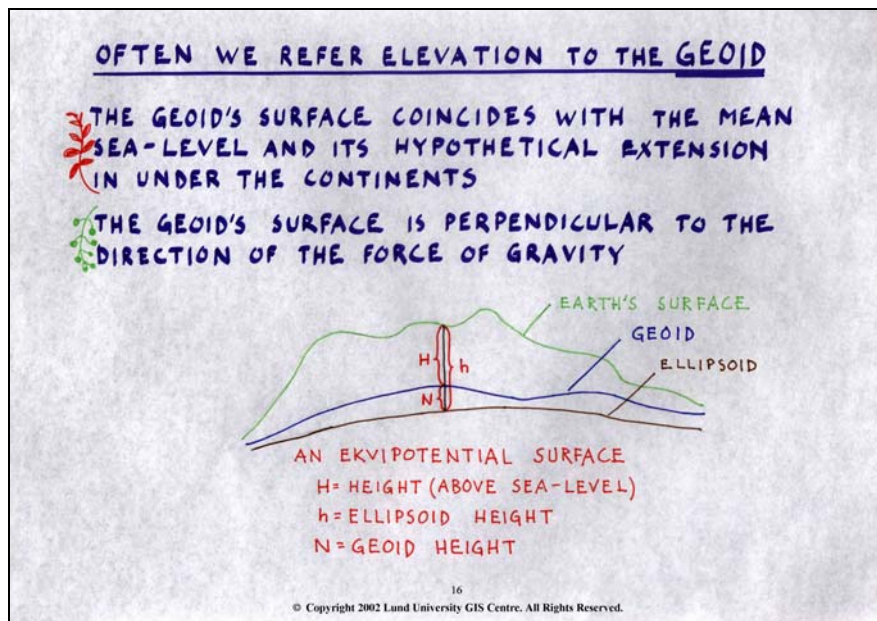 OFTEN WE REFER ELEVATION TO THE GEOID
THE GEOID'S SURFACE COINCIDES WITH THE MEAN
SEA-LEVEL AND ITS HYPOTHETICAL EXTENSION
IN UNDER THE CONTINENTS
THE GEOID'S SURFACE IS PERPENDICULAR TO THE
DIRECTION OF THE FORCE OF GRAVITY
EARTH'S SURFACE
GEOID
ELLIPSOID
H
h
N
AN EKVIPOTENTIAL SURFACE
H= HEIGHT (ABOVE SEA-LEVEL)
h= ELLIPSOID HEIGHT
N= GEOID HEIGHT
16
© Copyright 2002 Lund University GIS Centre. All Rights Reserved.